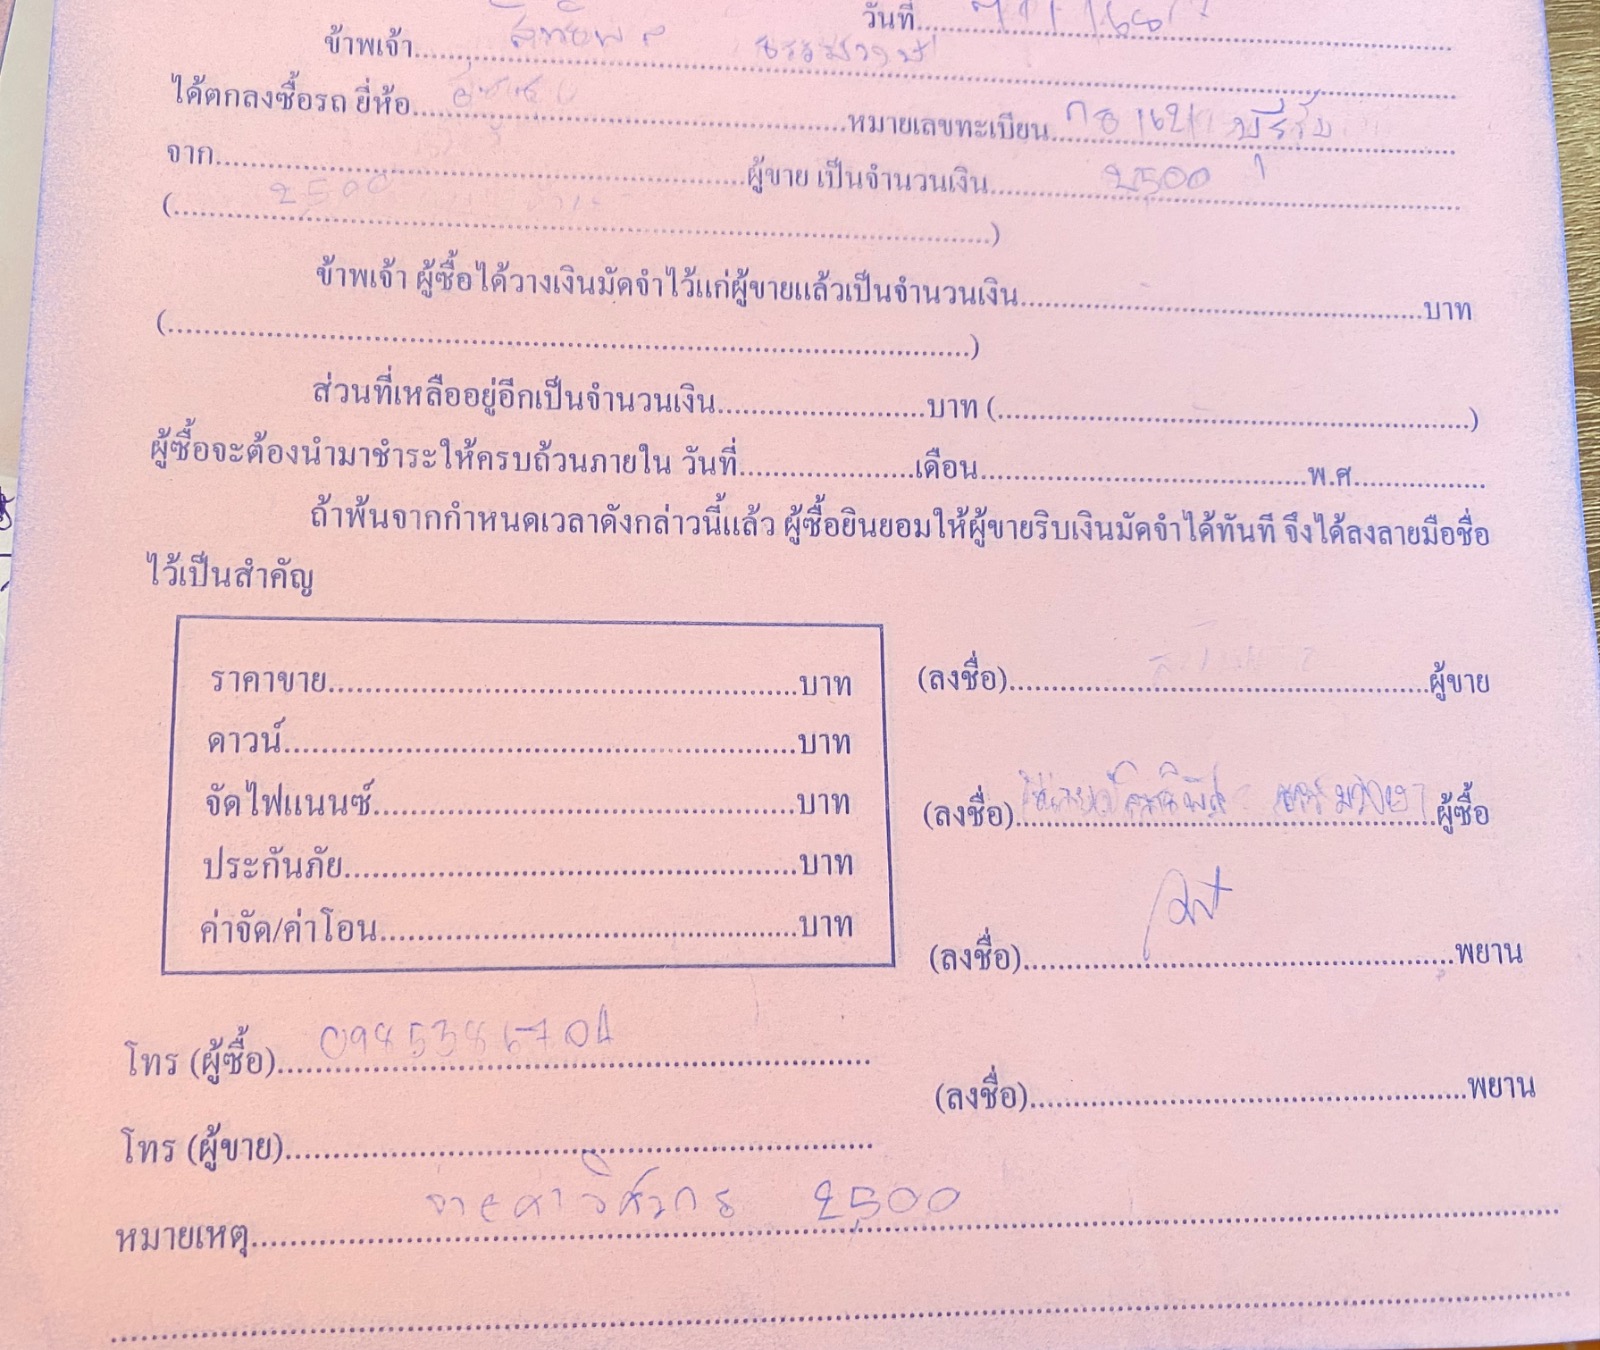 วันที่
ข้าพเจ้า
ได้ตกลงซื้อรถ ยี่ห้อ หมายเลขทะเบียน บุรีรัม
จาก ผู้ขาย เป็นจำนวนเงิน 2500
(2500)
ข้าพเจ้า ผู้ซื้อได้วางเงินมัดจำไว้แก่ผู้ขายแล้วเป็นจำนวนเงิน บาท
( )
ส่วนที่เหลืออยู่อีกเป็นจำนวนเงิน บาท ( )
ผู้ซื้อจะต้องนำมาชำระให้ครบถ้วนภายใน วันที่ เดือน พ.ศ.
ถ้าพ้นจากกำหนดเวลาดังกล่าวนี้แล้ว ผู้ซื้อยินยอมให้ผู้ขายริบเงินมัดจำได้ทันที จึงได้ลงลายมือชื่อ
ไว้เป็นสำคัญ
ราคาขาย บาท
ดาวน์ บาท
จัดไฟแนนซ์ บาท
ประกันภัย บาท
ค่าจัด/ค่าโอน บาท
(ลงชื่อ) ผู้ขาย
(ลงชื่อ) ผู้ซื้อ
(ลงชื่อ) พยาน
(ลงชื่อ) พยาน
โทร (ผู้ซื้อ) 0985386704
โทร (ผู้ขาย)
หมายเหตุ วิศวกร 2500